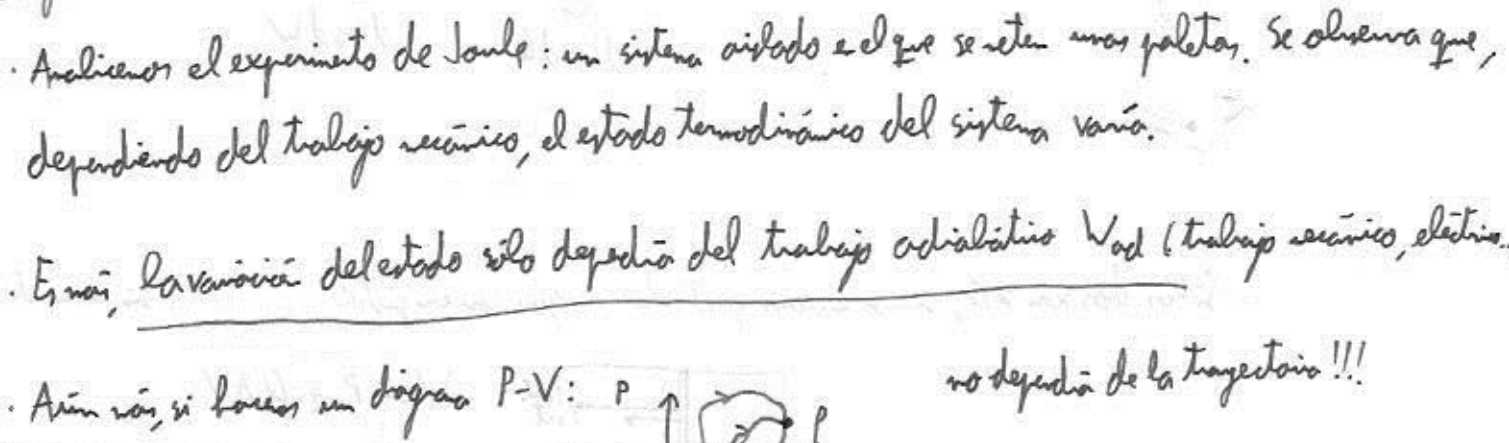 · Analicemos el experimento de Joule: un sistema aislado en el que se meten unas paletas. Se observa que,
dependiendo del trabajo mecánico, el estado termodinámico del sistema varía.
· Es más, la variación del estado sólo dependía del trabajo adiabático Wad (trabajo mecánico, eléctrico..
no dependía de la trayectoria!!!
· Aún más, si hacemos un diagrama P-V: P